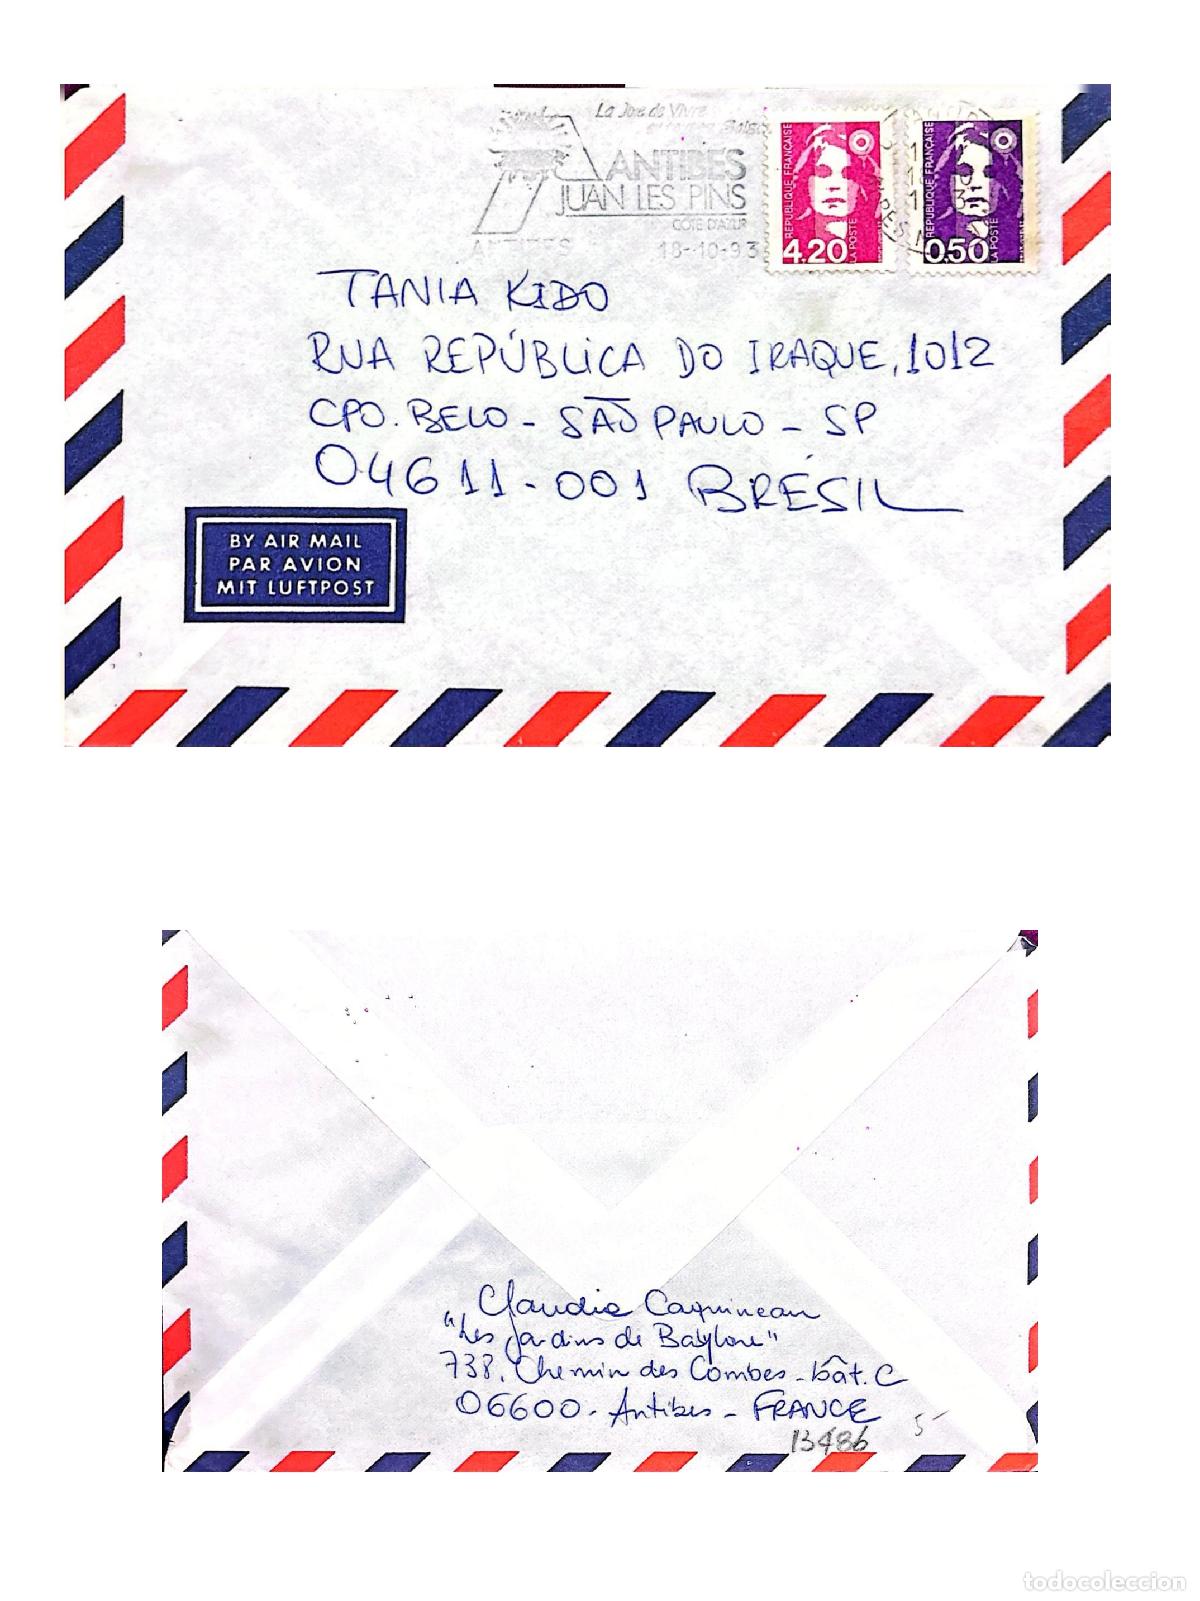 La Joie de Vivre
ANTIBES
JUAN LES PINS
COTE D'AZUR
ANTIBES 18-10-93
REPUBLIQUE FRANÇAISE
4,20
LA POSTE
REPUBLIQUE FRANÇAISE
0,50
LA POSTE
TANIA KIDO
RUA REPÚBLICA DO IRAQUE, 1012
CPO. BELO - SÃO PAULO - SP
04611-001 BRÉSIL
BY AIR MAIL
PAR AVION
MIT LUFTPOST
Claudia Caquineau
"Les Jardins de Babylone"
738, Chemin des Combes - bât. C
06600 - Antibes - FRANCE
13486
5-
todocoleccion